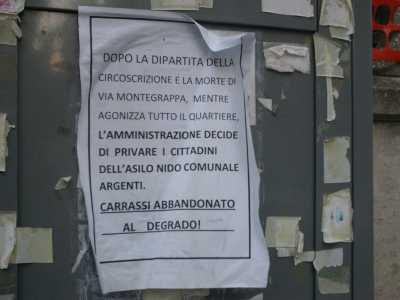 DOPO LA DIPARTITA DELLA
CIRCOSCRIZIONE E LA MORTE DI
VIA MONTEGRAPPA, MENTRE
AGONIZZA TUTTO IL QUARTIERE,
L'AMMINISTRAZIONE DECIDE
DI PRIVARE I CITTADINI
DELL'ASILO NIDO COMUNALE
ARGENTI.
CARRASSI ABBANDONATO
AL DEGRADO!